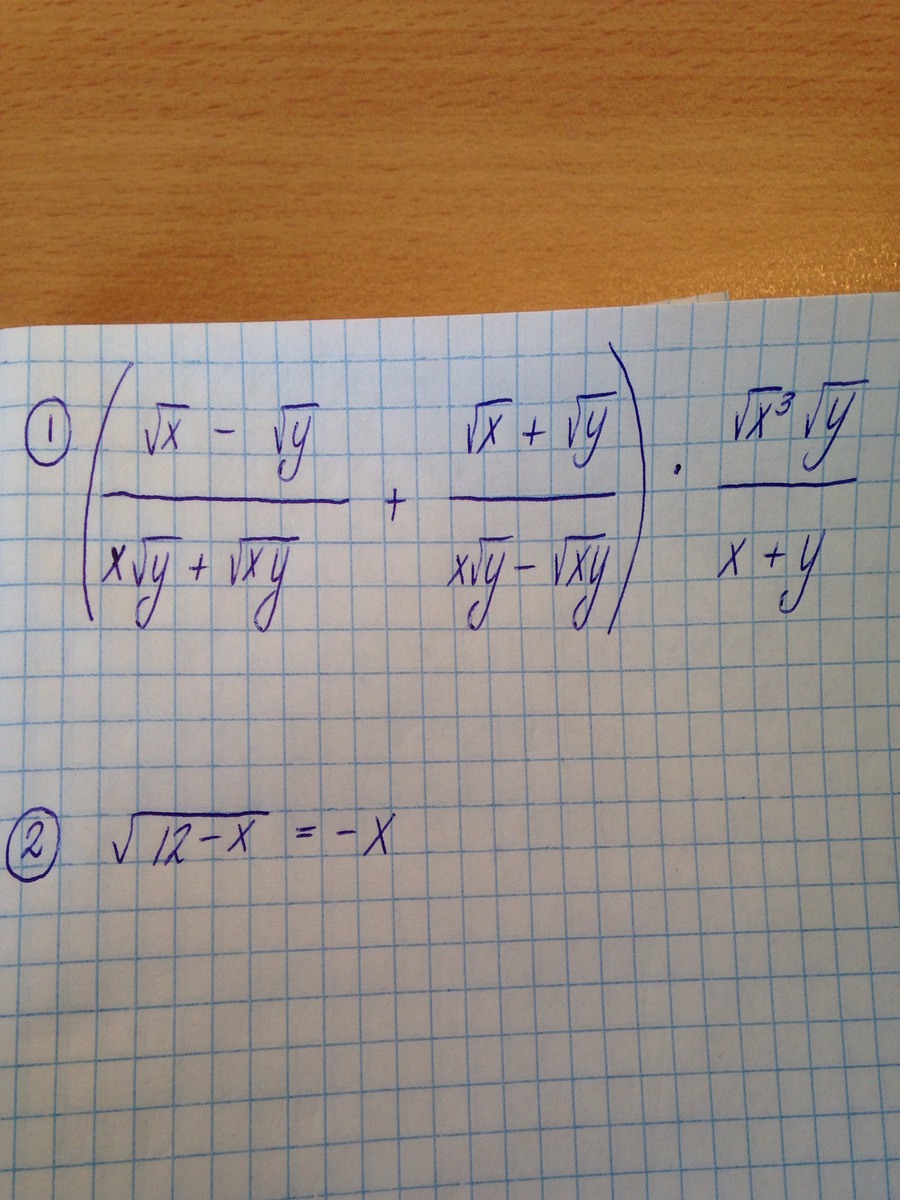 ① (√x - √y / x√y + √xy + √x + √y / x√y - √xy) · √x³ √y / x + y
② √12-x = -x